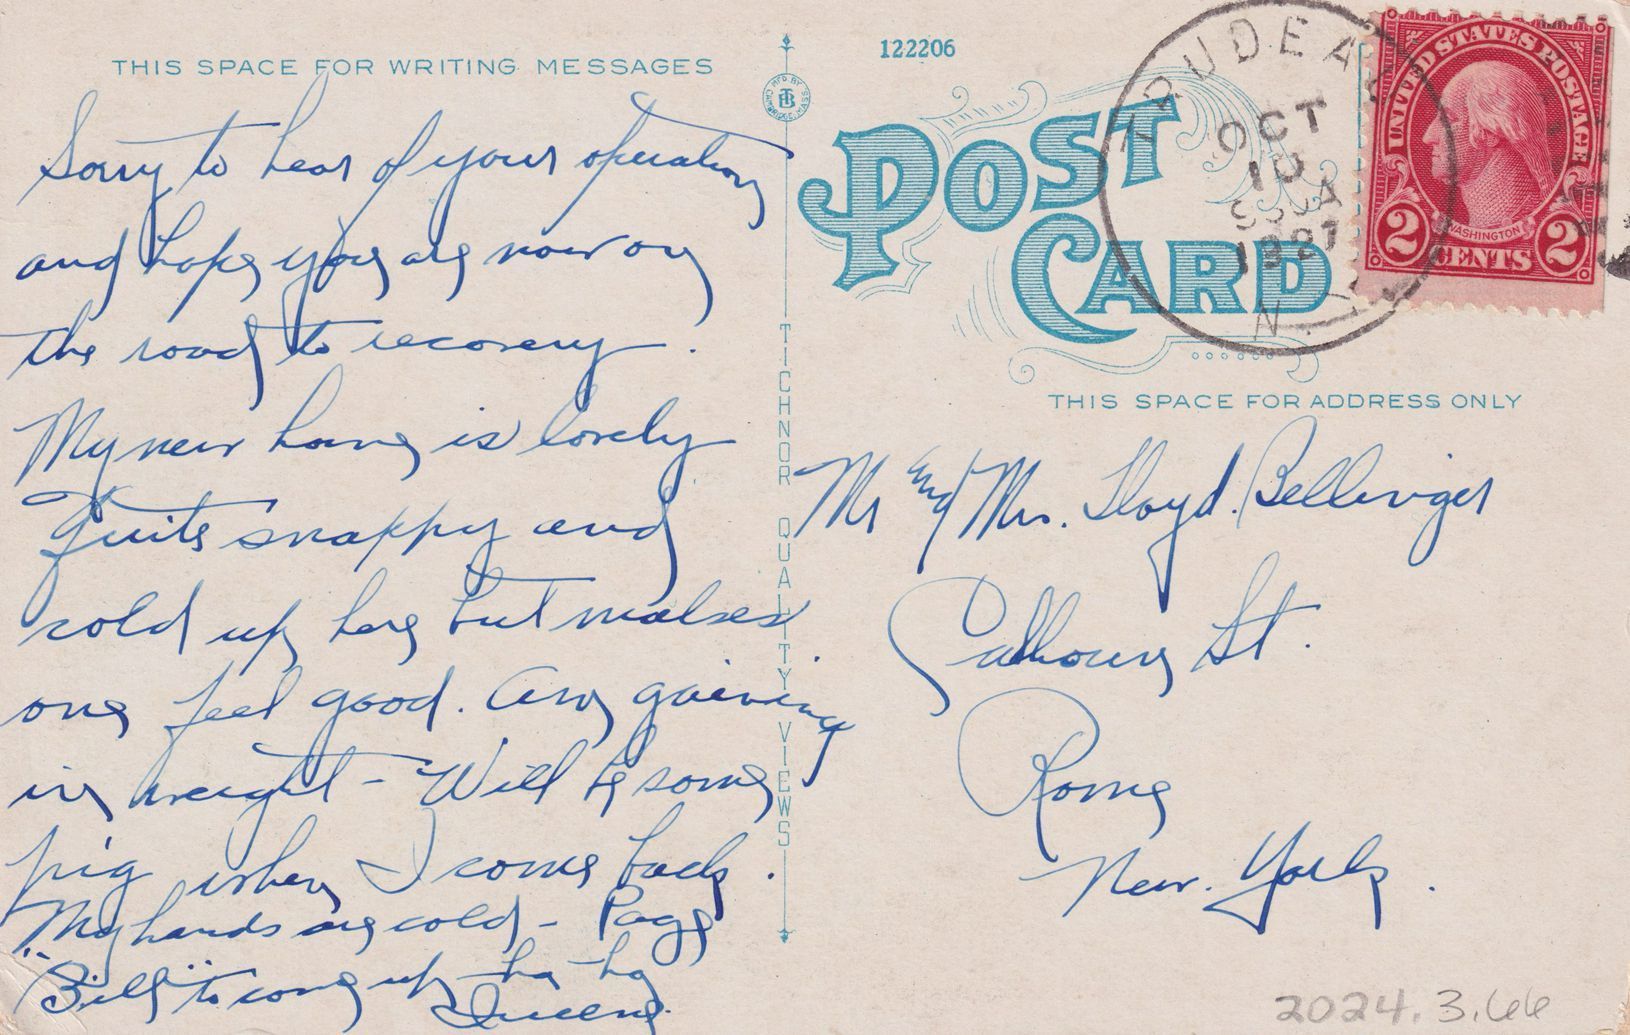 THIS SPACE FOR WRITING MESSAGES
Sorry to hear of your operation
and hope you are now on
the road to recovery.
My new home is lovely
Quite snappy and
cold up here but makes
one feel good. Am gaining
in weight - Will be some
pig when I come back.
My hands are cold - Page
"Bill" to come up - ha - ha
MFD BY
CAMBRIDGE, MASS
TICHNOR QUALITY VIEWS
122206
POST
CARD
TRUDEAU
OCT
10
1927
N.Y.
UNITED STATES POSTAGE
WASHINGTON
2 CENTS 2
THIS SPACE FOR ADDRESS ONLY
Mr and Mrs. Lloyd Bellinger
Calhoun St.
Rome
New York.
2024.3.66